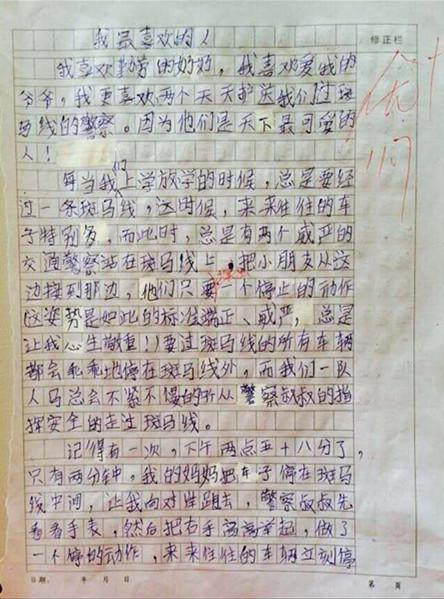 我最喜欢的人
修正栏
我喜欢勤劳的奶奶，我喜欢爱我的
爷爷，我更喜欢两个天天护送我们过斑
马线的警察。因为他们是天下最可爱的
人！
优+
11/7
每当我们上学放学的时候，总是要经
过一条斑马线，这时候，来来往往的车
子特别多，而此时，总是有两个威严的
交通警察站在斑马线上，把小朋友从这
边接到那边，他们只要一个停止的动作
这姿势是如此的标准端正、威严，总是
让我心生敬重！要过斑马线的所有车辆
都会乖乖地停在斑马线外，而我们一队
人马总会不紧不慢的听从警察叔叔的指
挥安全的走过斑马线。
记得有一次，下午两点五十八分了，
只有两分钟，我的妈妈把车子停在斑马
线中间，让我向对岸跑去，警察叔叔先
看看手表，然后把右手高高举起，做了
一个停的动作，来来往往的车辆立刻停
日期： 年 月 日
第 页